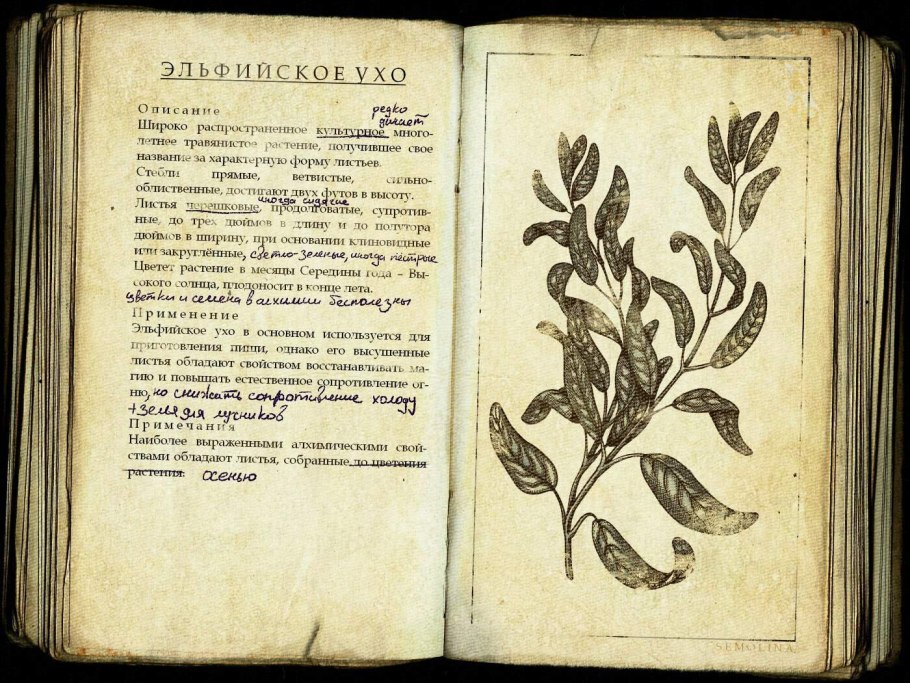 ЭЛЬФИЙСКОЕ УХО
Описание
редко
дичает
Широко распространенное культурное много-
летнее травянистое растение, получившее свое
название за характерную форму листьев.
Стебли прямые, ветвистые, сильно-
облиственные, достигают двух футов в высоту.
иногда сидячие
Листья черешковые, продолговатые, супротив-
ные, до трех дюймов в длину и до полутора
дюймов в ширину, при основании клиновидные
или закруглённые, светло-зеленые, иногда пёстрые
Цветет растение в месяцы Середины года – Вы-
сокого солнца, плодоносит в конце лета.
цветки и семена в алхимии бесполезны
Применение
Эльфийское ухо в основном используется для
приготовления пищи, однако его высушенные
листья обладают свойством восстанавливать ма-
гию и повышать естественное сопротивление ог-
ню, но снижать сопротивление холоду
+зелья для лучников
Примечания
Наиболее выраженными алхимическими свой-
ствами обладают листья, собранные до цветения
растения. осенью
SEMOLINA